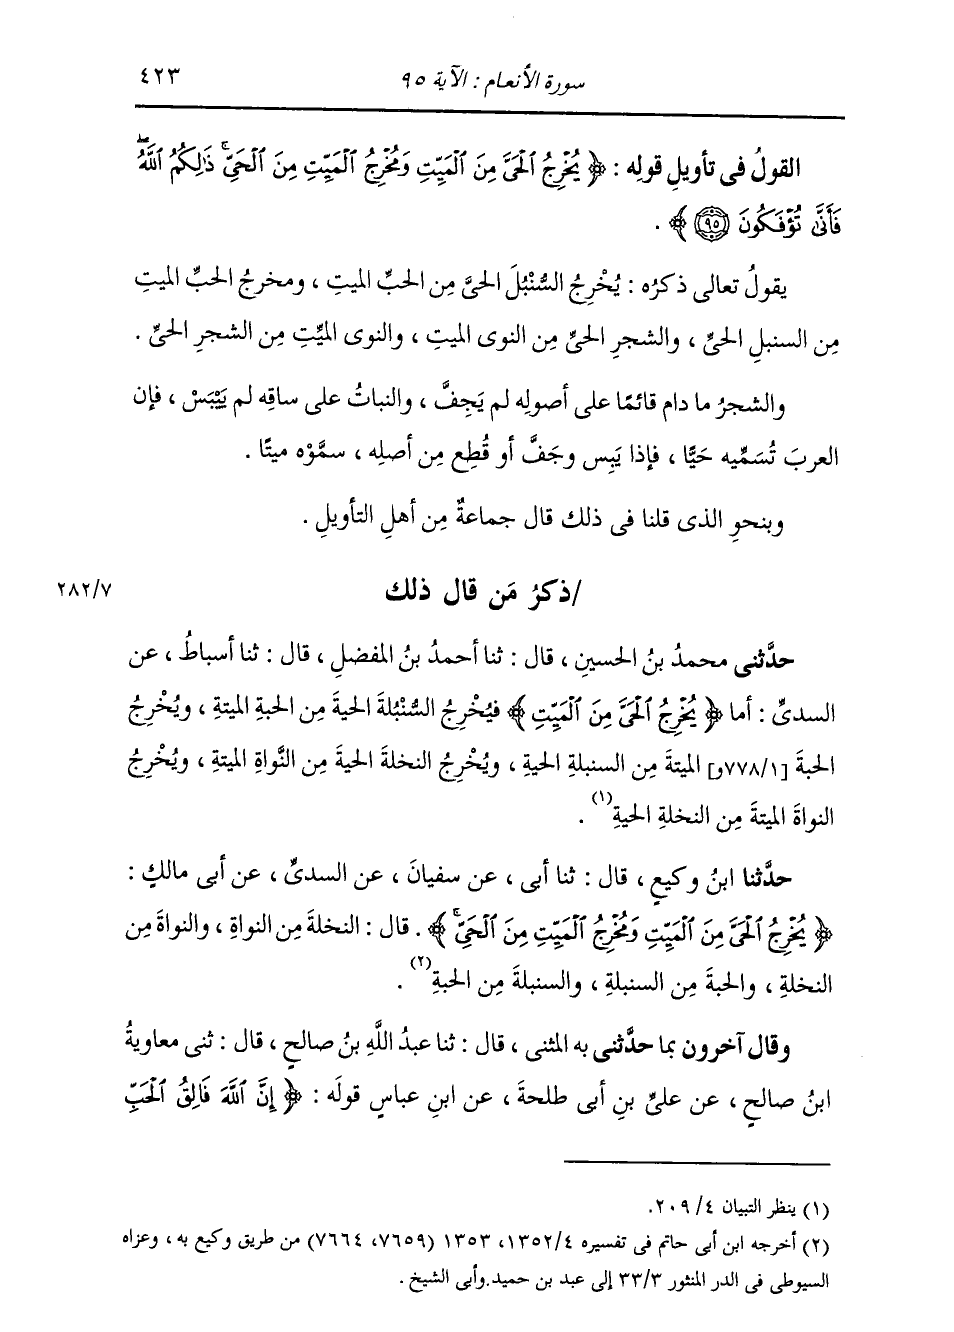 سورة الأنعام : الآية ٩٥ ٤٢٣
القولُ فى تأويلِ قولِه : ﴿ يُخْرِجُ ٱلْحَىَّ مِنَ ٱلْمَيِّتِ وَمُخْرِجُ ٱلْمَيِّتِ مِنَ ٱلْحَىِّۚ ذَٰلِكُمُ ٱللَّهُۖ
فَأَنَّىٰ تُؤْفَكُونَ ٩٥ ﴾ .
يقولُ تعالى ذكرُه : يُخْرِجُ السُّنْبُلَ الحىَّ مِن الحبِّ الميتِ ، ومخرجُ الحبِّ الميتِ
مِن السنبلِ الحىِّ ، والشجرِ الحىِّ مِن النوى الميتِ ، والنوى الميِّتِ مِن الشجرِ الحىِّ .
والشجرُ ما دام قائمًا على أصولِه لم يَجِفَّ ، والنباتُ على ساقِه لم يَيْبَسْ ، فإن
العربَ تُسَمِّيه حَيًّا ، فإذا يَبِس وجَفَّ أو قُطِع مِن أصلِه ، سمَّوْه ميتًا .
وبنحوِ الذى قلنا فى ذلك قال جماعةٌ مِن أهلِ التأويلِ .
/ذكرُ مَن قال ذلك ٢٨٢/٧
حدَّثنى محمدُ بنُ الحسينِ ، قال : ثنا أحمدُ بنُ المفضلِ ، قال : ثنا أسباطُ ، عن
السدىِّ : أما ﴿ يُخْرِجُ ٱلْحَىَّ مِنَ ٱلْمَيِّتِ ﴾ فيُخْرِجُ السُّنْبُلةَ الحيةَ مِن الحبةِ الميتةِ ، ويُخْرِجُ
الحبةَ [٧٧٨/١و] الميتةَ مِن السنبلةِ الحيةِ ، ويُخْرِجُ النخلةَ الحيةَ مِن النَّواةِ الميتةِ ، ويُخْرِجُ
النواةَ الميتةَ مِن النخلةِ الحيةِ(١) .
حدَّثنا ابنُ وكيعٍ ، قال : ثنا أبى ، عن سفيانَ ، عن السدىِّ ، عن أبى مالكٍ :
﴿ يُخْرِجُ ٱلْحَىَّ مِنَ ٱلْمَيِّتِ وَمُخْرِجُ ٱلْمَيِّتِ مِنَ ٱلْحَىِّۚ ﴾ . قال : النخلةَ مِن النواةِ ، والنواةَ مِن
النخلةِ ، والحبةَ مِن السنبلةِ ، والسنبلةَ مِن الحبةِ(٢) .
وقال آخرون بما حدَّثنى به المثنى ، قال : ثنا عبدُ اللَّهِ بنُ صالحٍ ، قال : ثنى معاويةُ
ابنُ صالحٍ ، عن علىِّ بنِ أبى طلحةَ ، عن ابنِ عباسٍ قولَه : ﴿ إِنَّ ٱللَّهَ فَالِقُ ٱلْحَبِّ
(١) ينظر التبيان ٤/ ٢٠٩.
(٢) أخرجه ابن أبى حاتم فى تفسيره ١٣٥٢/٤، ١٣٥٣ (٧٦٥٩، ٧٦٦٤) من طريق وكيع به ، وعزاه
السيوطى فى الدر المنثور ٣٣/٣ إلى عبد بن حميد.وأبى الشيخ .